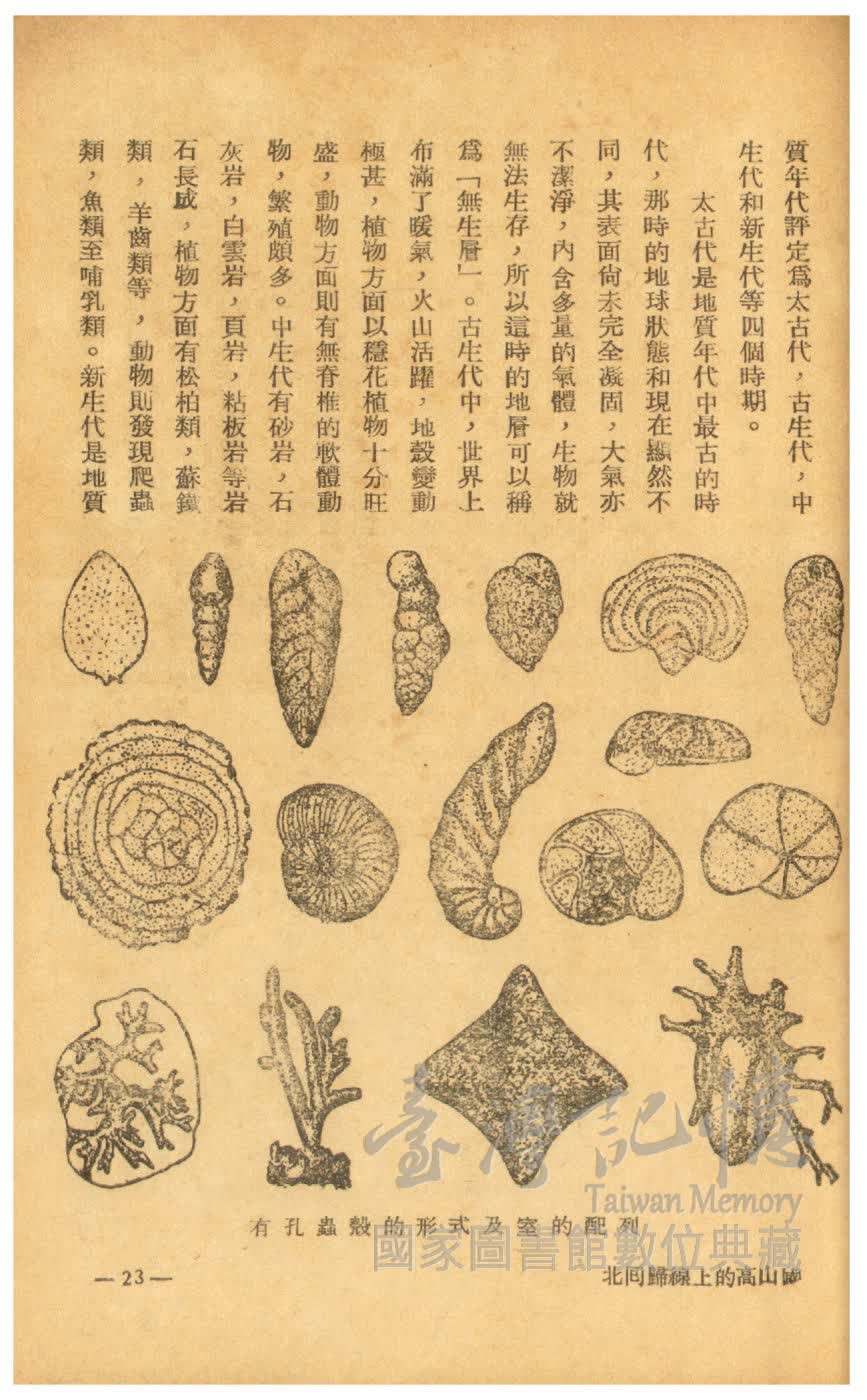 質年代評定為太古代，古生代，中
生代和新生代等四個時期。
太古代是地質年代中最古的時
代，那時的地球狀態和現在顯然不
同，其表面尙未完全凝固，大氣亦
不潔淨，內含多量的氣體，生物就
無法生存，所以這時的地層可以稱
為「無生層」。古生代中，世界上
布滿了暖氣，火山活躍，地殼變動
極甚，植物方面以穩花植物十分旺
盛，動物方面則有無脊椎的軟體動
物，繁殖頗多。中生代有砂岩，石
灰岩，白雲岩，頁岩，粘板岩等岩
石長成，植物方面有松柏類，蘇鐵
類，羊齒類等，動物則發現爬蟲
類，魚類至哺乳類。新生代是地質
有孔蟲殼的形式及室的配列
臺灣記憶
Taiwan Memory
國家圖書館數位典藏
—23—
北回歸線上的高山國